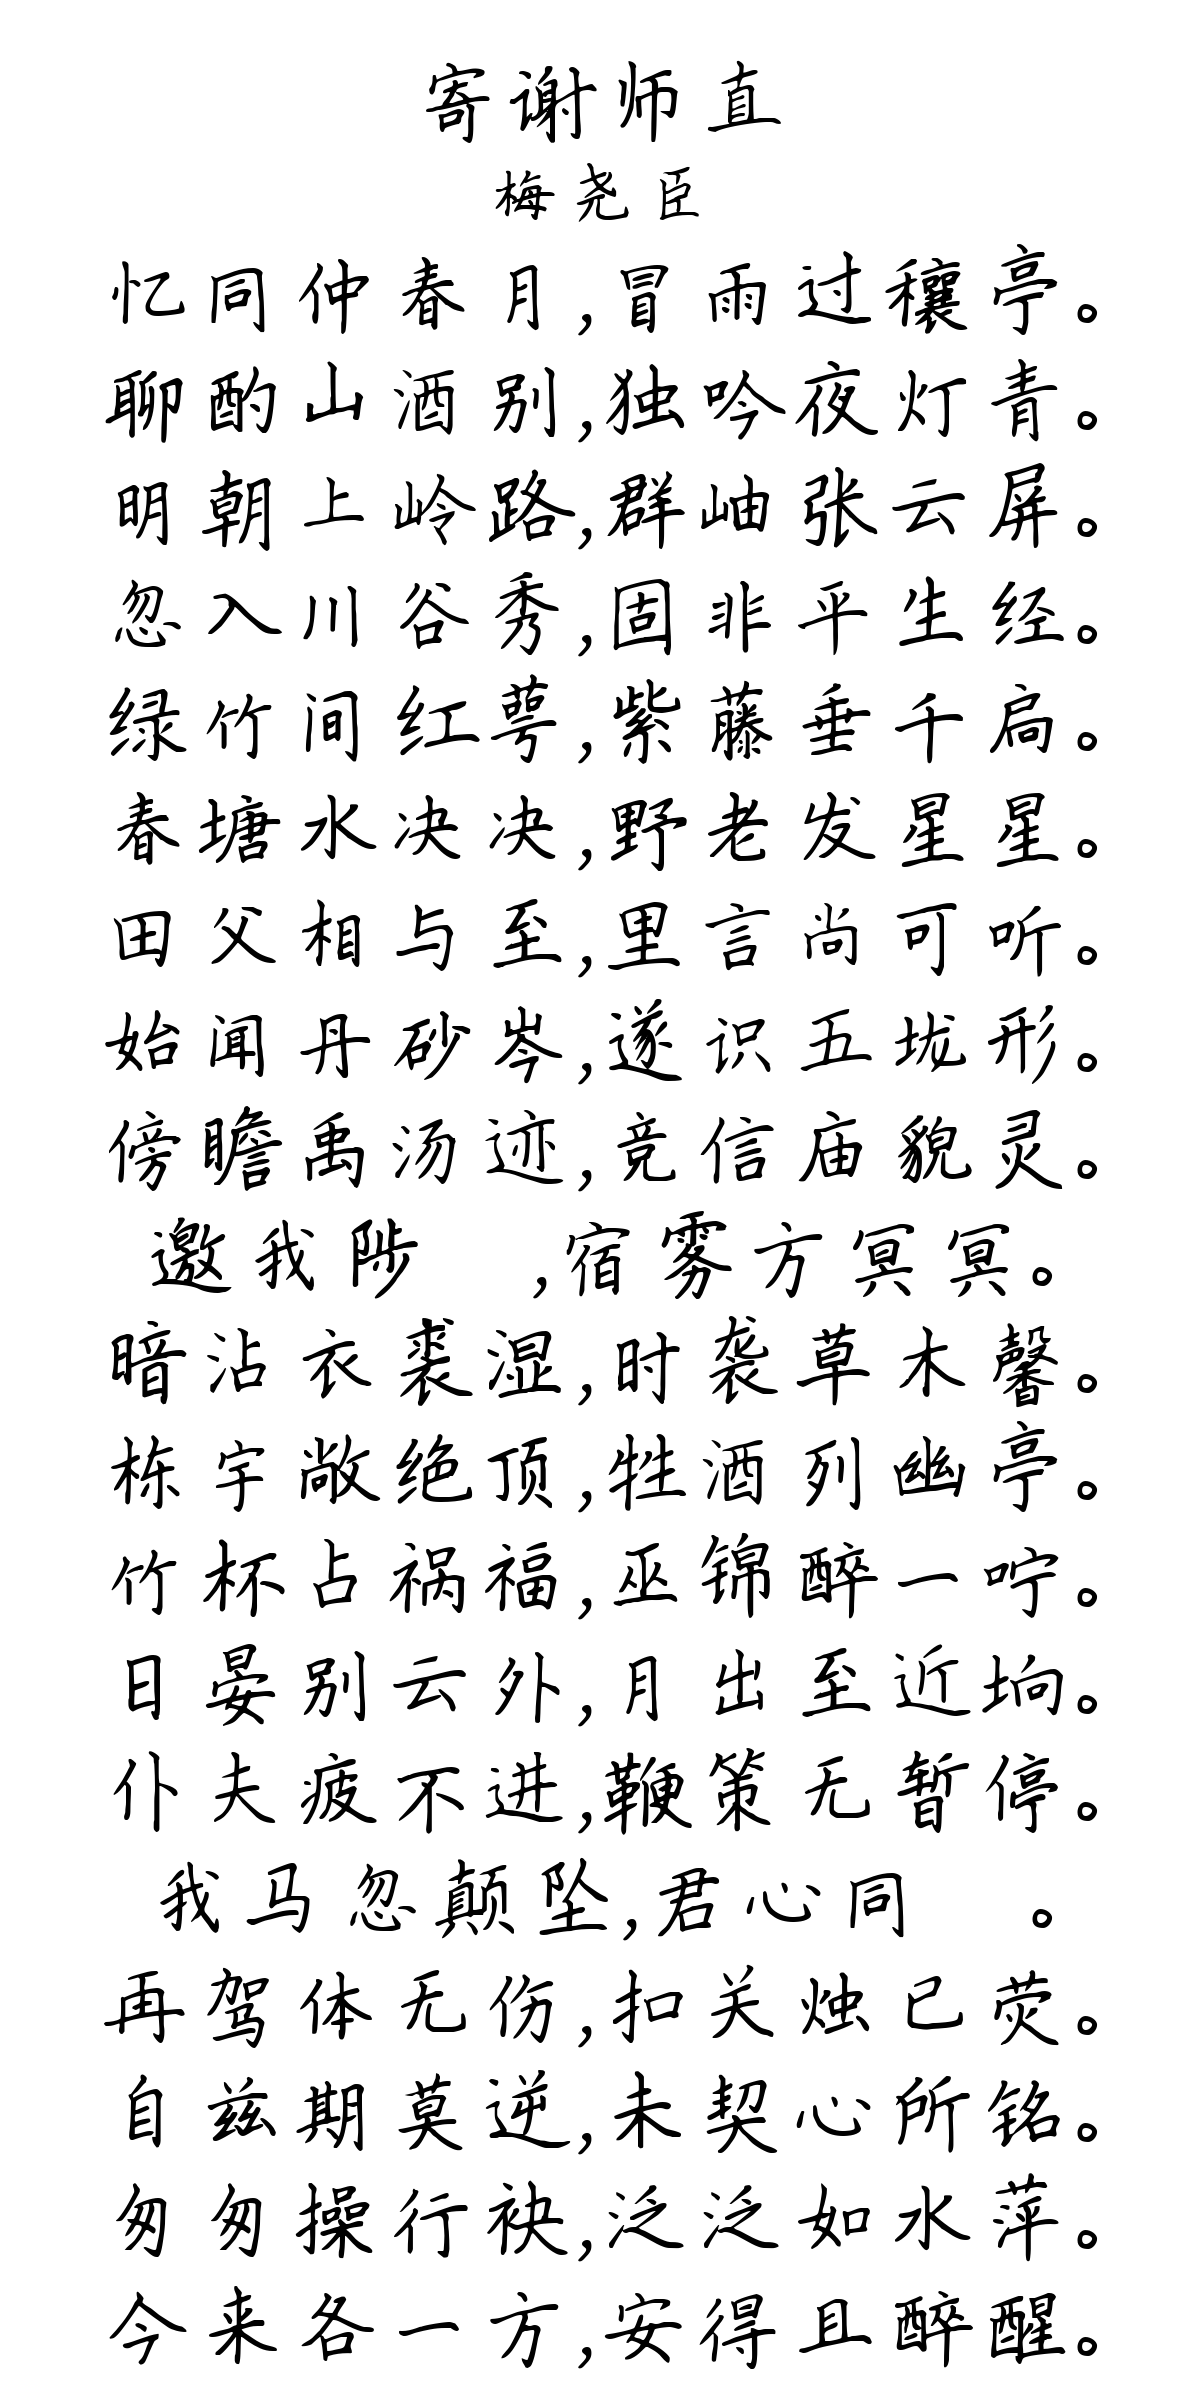 寄谢师直
梅尧臣
忆同仲春月,冒雨过穰亭。
聊酌山酒别,独吟夜灯青。
明朝上岭路,群岫张云屏。
忽入川谷秀,固非平生经。
绿竹间红萼,紫藤垂千扃。
春塘水决决,野老发星星。
田父相与至,里言尚可听。
始闻丹砂岑,遂识五垅形。
傍瞻禹汤迹,竞信庙貌灵。
邀我陟 ,宿雾方冥冥。
暗沾衣裘湿,时袭草木馨。
栋宇敞绝顶,牲酒列幽亭。
竹杯占祸福,巫锦醉一咛。
日晏别云外,月出至近坰。
仆夫疲不进,鞭策无暂停。
我马忽颠坠,君心同 。
再驾体无伤,扣关烛已荧。
自兹期莫逆,未契心所铭。
匆匆操行袂,泛泛如水萍。
今来各一方,安得且醉醒。